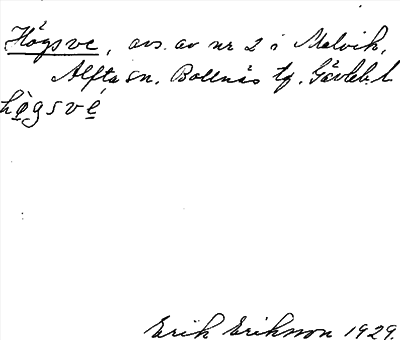 Högsve, avs. av nr 2 i Malvik,
Alfta sn. Bollnäs tg. Gävleb. l
hògsvé
Erik Eriksson 1929.